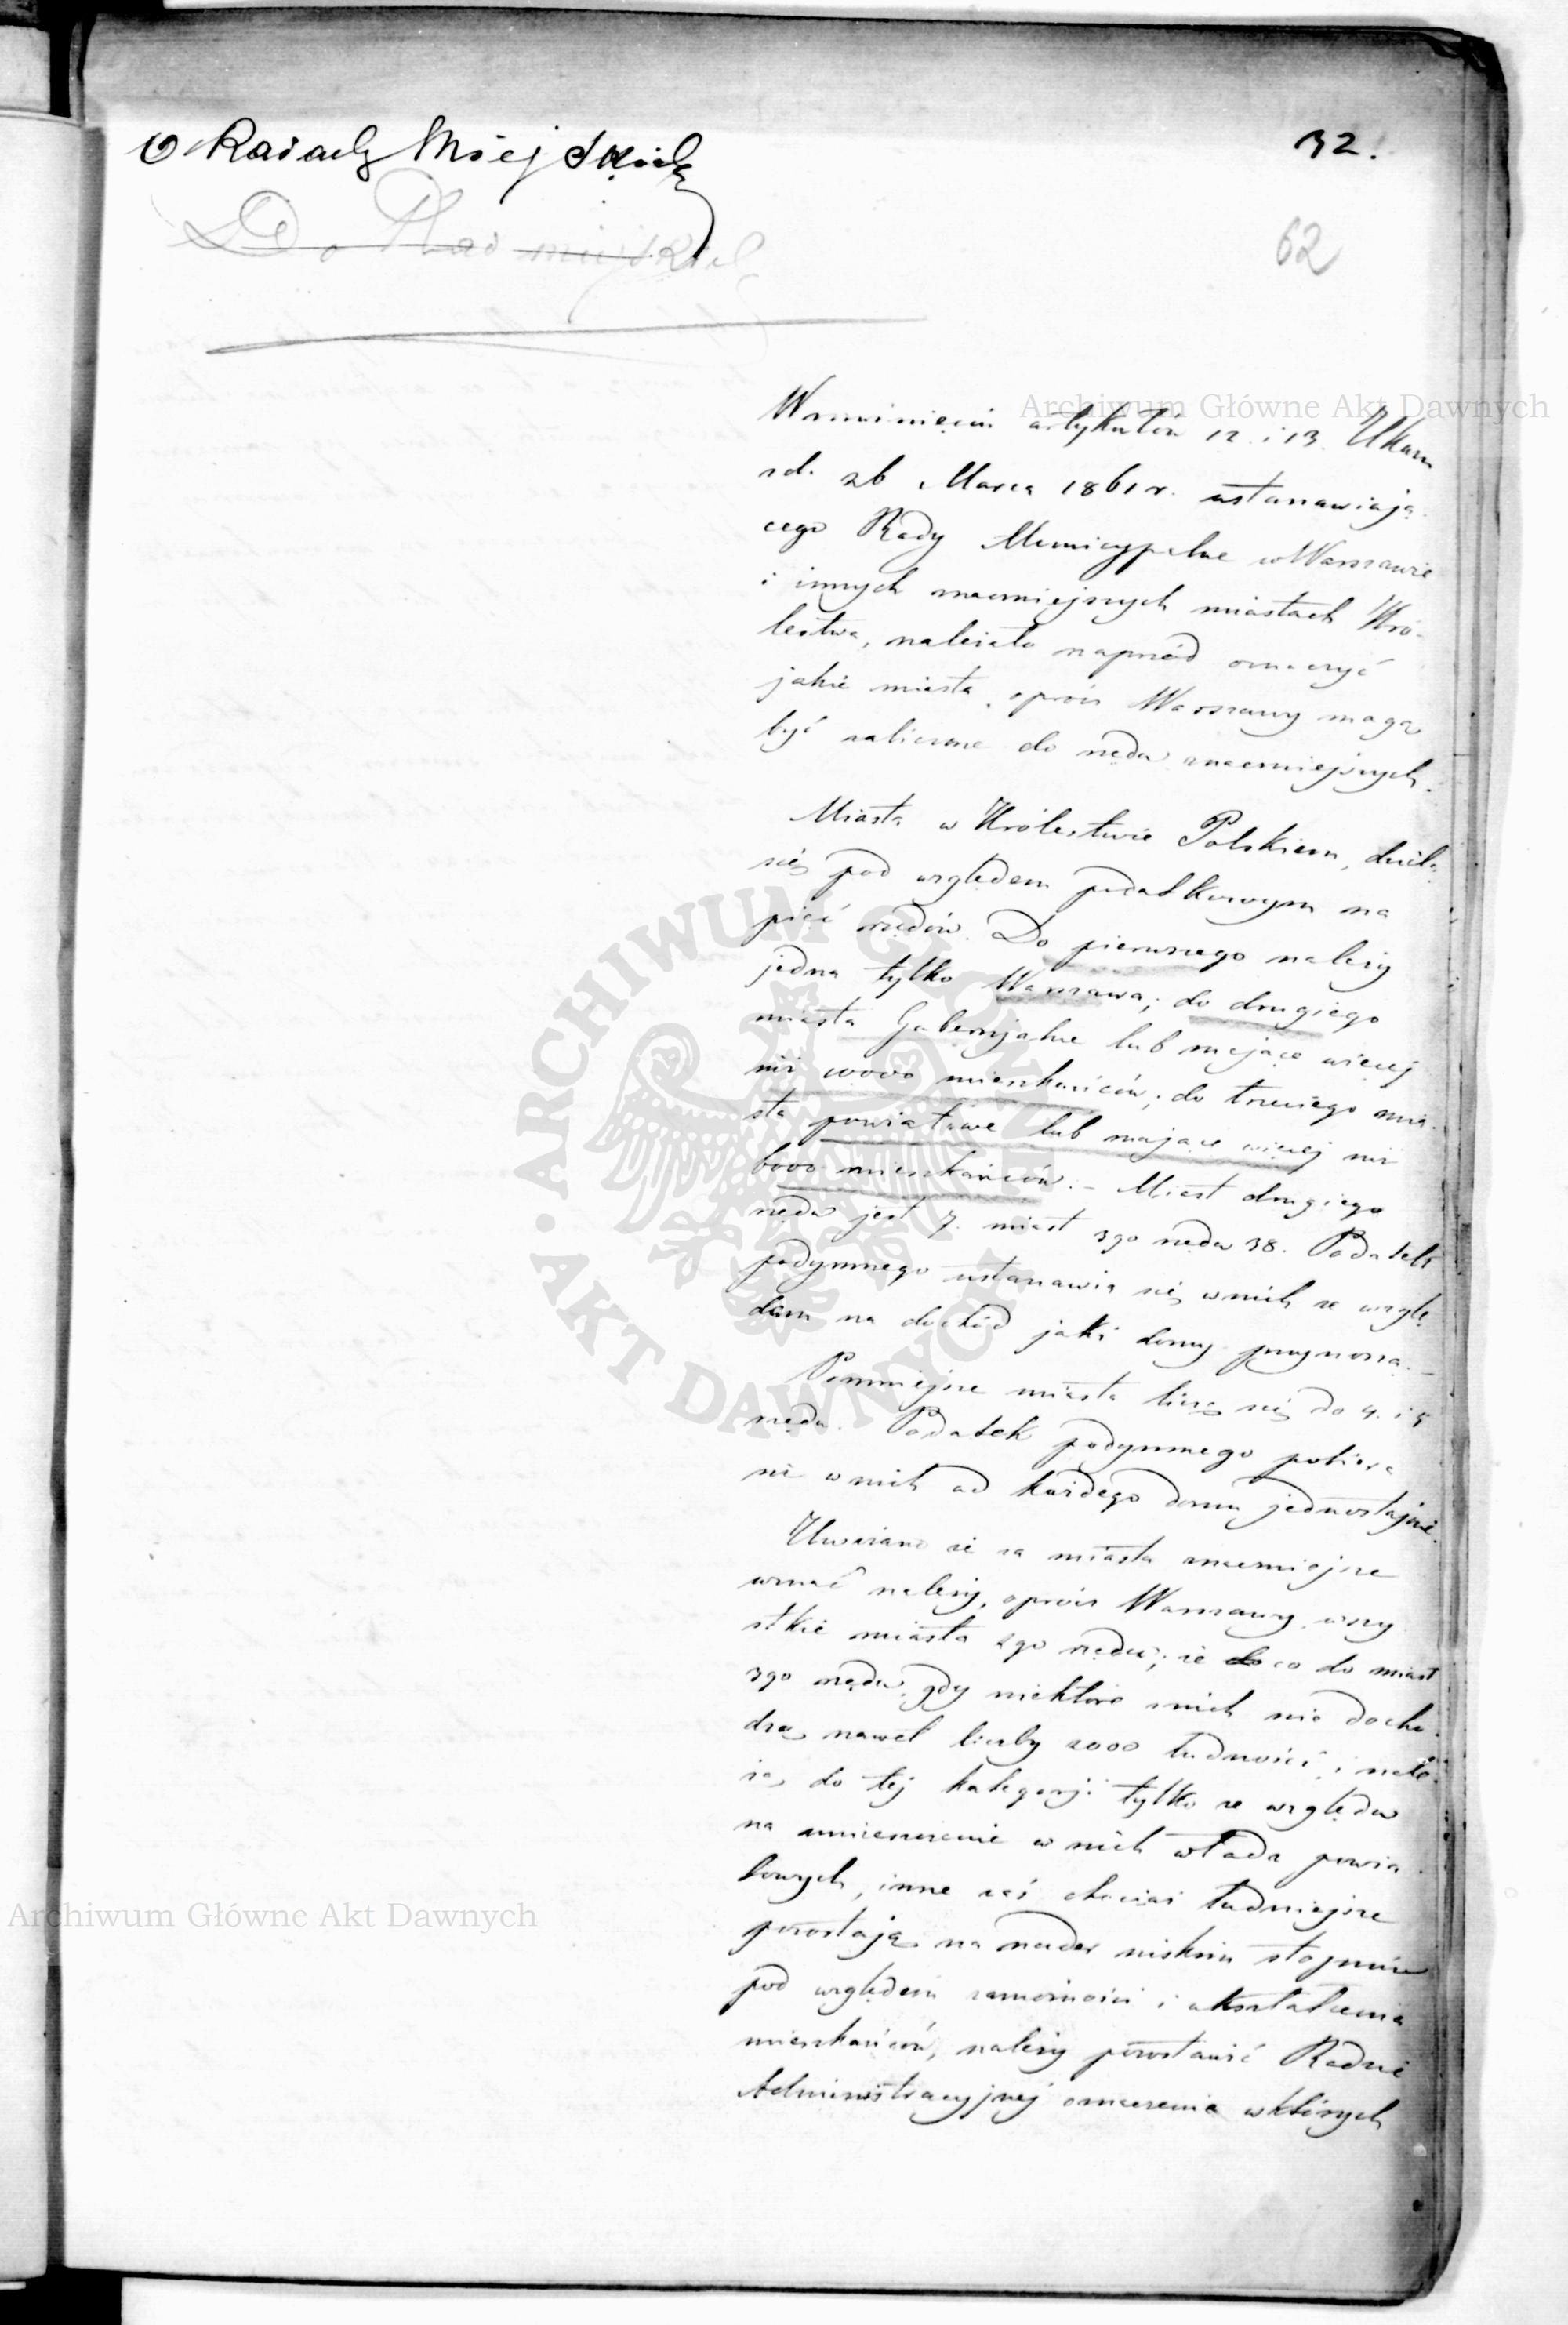 O Radach Miejskich
32.
Do Rad miejskich
62
Archiwum Główne Akt Dawnych
W rozwinięciu artykułów 12. i 13. Ukazu
z d. 26 Marca 1861 r. ustanawiają-
cego Rady Municypalne w Warszawie
i innych znaczniejszych miastach Kró-
lestwa, należało naprzód oznaczyć
jakie miasta, oprócz Warszawy mogą
być zaliczone do rzędu znaczniejszych.
Miasta w Królestwie Polskiem, dzielą
się pod względem podatkowym na
pięć rzędów. Do pierwszego należy
jedna tylko Warszawa; do drugiego
miasta Gubernjalne lub mające więcej
niż 10,000 mieszkańców; do trzeciego mia-
sta powiatowe lub mające więcej niż
6000 mieszkańców. – Miast drugiego
rzędu jest 7. miast 3go rzędu 38. Podatek
podymnego ustanawia się w nich ze wzglę-
dem na dochód jaki domy przynoszą. –
Pomniejsze miasta liczą się do 4. i 5
rzędu. Podatek podymnego pobiera
się w nich od każdego domu jednostajnie.
Uważano że za miasta znaczniejsze
uznać należy, oprócz Warszawy, wszy
stkie miasta 2go rzędu; że co do miast
3go rzędu, gdy niektóre z nich nie docho-
dzą nawet liczby 2000 ludności, i nale-
żą do tej kategorji tylko ze względu
na umieszczenie w nich władz powia-
towych, inne zaś chociaż ludniejsze
pozostają na nader niskim stopniu
pod względem zamożności i ukształcenia
mieszkańców, należy pozostawić Radzie
Administracyjnej oznaczenie w których
Archiwum Główne Akt Dawnych
ARCHIWUM GŁÓWNE • AKT DAWNYCH •